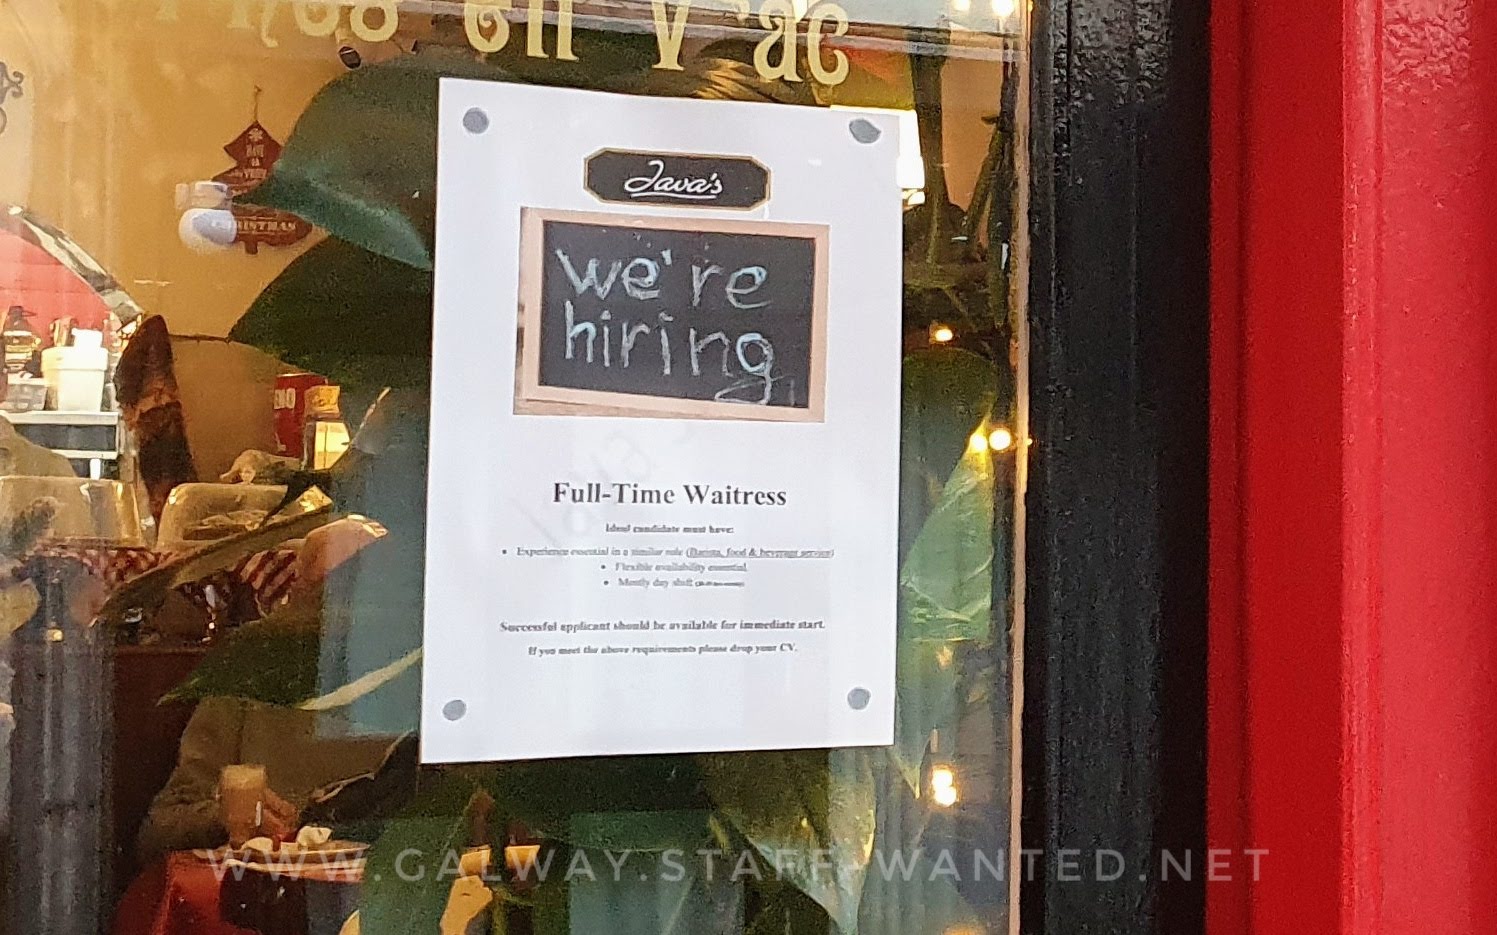 Java's
we're
hiring
Full-Time Waitress
Ideal candidate must have:
• Experience essential in a similar role (Barista, food & beverage service)
• Flexible availability essential
• Mostly day shift
Successful applicant should be available for immediate start.
If you meet the above requirements please drop your CV.
HAVE
CHRISTMAS
WWW.GALWAY.STAFF-WANTED.NET